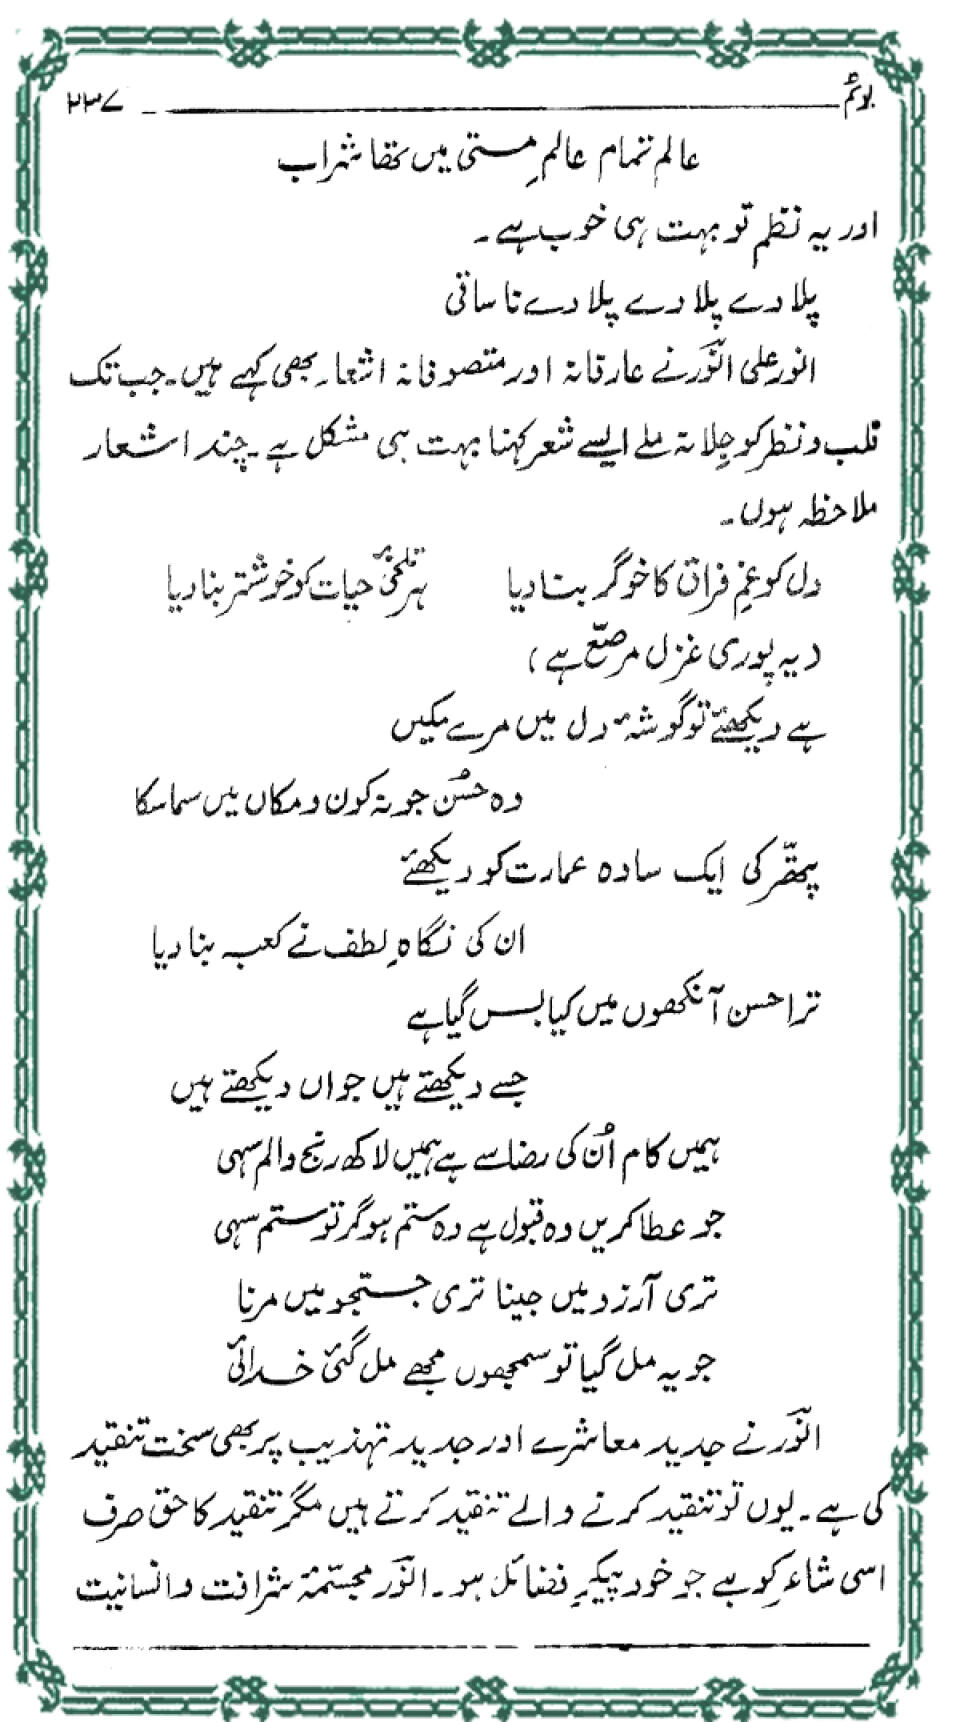 بوئم ۲۳۷
عالم تمام عالمِ مستی میں تھا شراب
اور یہ نظم تو بہت ہی خوب ہے۔
پلا دے پلا دے پلا دے نا ساقی
انور علی انورؔ نے عارفانہ اور متصوفانہ اشعار بھی کہے ہیں۔ جب تک
قلب و نظر کو جِلا نہ ملے ایسے شعر کہنا بہت ہی مشکل ہے۔ چند اشعار
ملاحظہ ہوں۔
دل کو غمِ فراق کا خوگر بنا دیا ہر تلخیٔ حیات کو خوشتر بنا دیا
(یہ پوری غزل مرصّع ہے)
ہے دیکھئے تو گوشۂ دل میں مرے مکیں
وہ حُسن جو نہ کون و مکاں میں سما سکا
پتھّر کی ایک سادہ عمارت کو دیکھئے
ان کی نگاہِ لطف نے کعبہ بنا دیا
ترا حسن آنکھوں میں کیا بس گیا ہے
جسے دیکھتے ہیں جواں دیکھتے ہیں
ہمیں کام اُن کی رضا سے ہے ہمیں لاکھ رنج والم سہی
جو عطا کریں وہ قبول ہے وہ ستم ہو گر تو ستم سہی
تری آرزو میں جینا تری جستجو میں مرنا
جو یہ مل گیا تو سمجھوں مجھے مل گئی خدائی
انورؔ نے جدید معاشرے اور جدید تہذیب پر بھی سخت تنقید
کی ہے۔ یوں تو تنقید کرنے والے تنقید کرتے ہیں مگر تنقید کا حق صرف
اسی شاعر کو ہے جو خود پیکرِ فضائل ہو۔ انورؔ مجسّمۂ شرافت و انسانیت